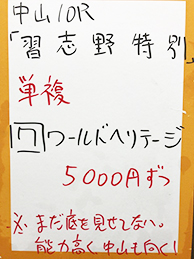 中山10R
「習志野特別」
単複
7 ワールドヘリテージ
5000円ずつ
※まだ底を見せてない。
能力高く、中山も向く!